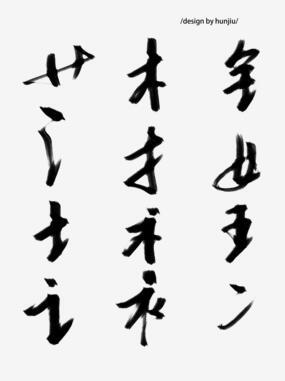 /design by hunjiu/
艹 木 钅
氵 扌 女
土 礻 王
讠 衤 冫